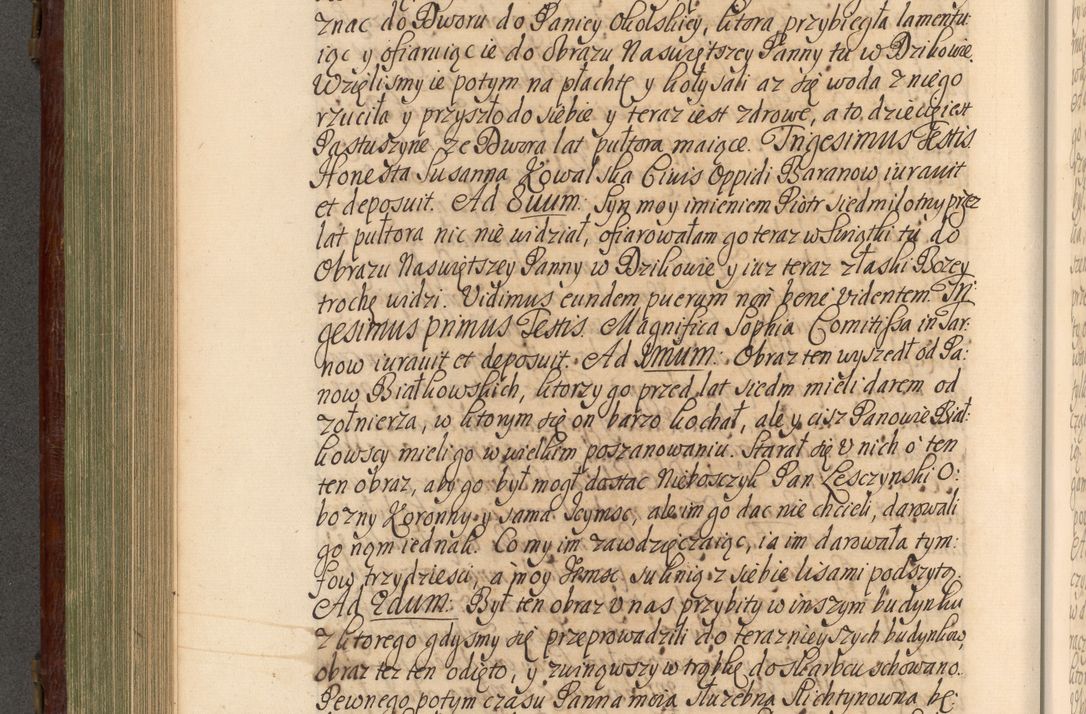 znac do Dworu do Paniey Okolskiey, ktora przybiegła lamentu
iąc y ofiaruiąc ie do Obrazu Naswiętszey Panny tu w Dzikowie.
Wzięlismy ie potym na płachtę y kołysali az się woda z niego
rzuciła y przyszło do siebie y teraz iest zdrowe, a to dziecię iest
Pastuszyne ze Dwora lat pułtora maiące. Trigesimus Testis.
Honesta Susanna Kowalska Civis Oppidi Baranow iurauit
et deposuit. Ad 8uum: Syn moy imieniem Piotr siedmiletny przez
lat pułtora nic nie widział, ofiarowałam go teraz w Swiątki tu do
Obrazu Naswiętszey Panny w Dzikowie y iuz teraz z łaski Bozey
trochę widzi. Vidimus eundem puerum non bene videntem Tri
gesimus primus Testis. Magnifica Sophia Comitissa in Tar:
now iurauit et deposuit. Ad 1mum: Obraz ten wyszedł od Pa:
now Białkowskich, ktorzy go przed lat siedm mieli darem od
zołnierza, w ktorym się on barzo kochał, ale y cisz Panowie Biał:
kowscy mieli go w wielkim poszanowaniu. Starał się v nich o ten
ten obraz, aby go był mogł dostac Nieboszczyk Pan Leszczynski O:
bozny Koronny y sama Jeymsc, ale im go dac nie chcieli, darowali
go nąm iednak. Co my im zawdzięczaiąc, ia im darowała tym:
fow trzydziesci, a moy Jemsc suknią z siebie lisami podszytą.
Ad 2dum: Był ten obraz v nas przybity w inszym budynku
z ktorego gdysmy się przeprowadzili do teraznieyszych budynkow,
obraz tez ten odięto, y zwinąwszy w trąbkę do skarbcu schowano.
Pewnego potym czasu Panna moia słuzebna Slichtynowna bę: